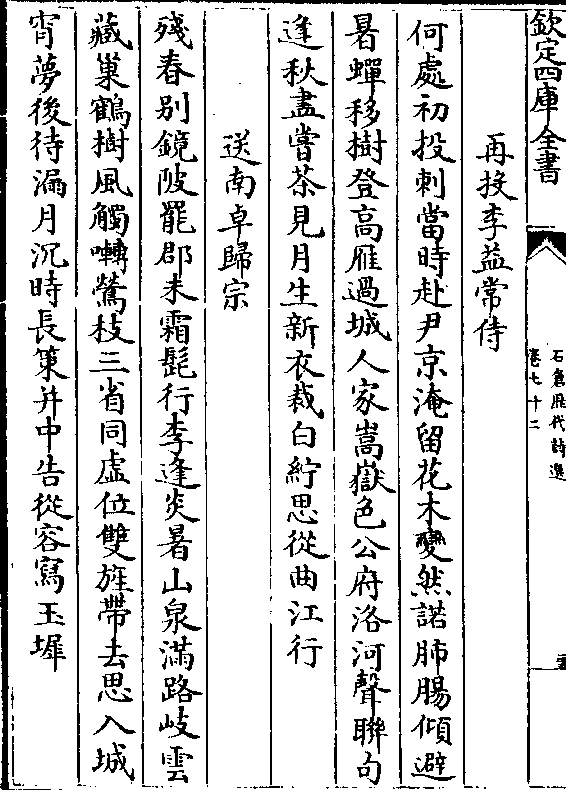 欽定四庫全書
石倉歷代詩選
卷七十二
再投李益常侍
何處初投刺當時赴尹京淹留花木變然諾肺腸傾避
暑蟬移樹登高雁過城人家嵩嶽色公府洛河聲聯句
逢秋盡嘗茶見月生新衣裁白紵思從曲江行
送南卓歸宗
殘春別鏡陂罷郡未霜髭行李逢炎暑山泉滿路岐雲
藏巢鶴樹風觸囀鶯枝三省同虛位雙旌帶去思入城
宵夢後待漏月沉時長策并中告從容寫玉墀